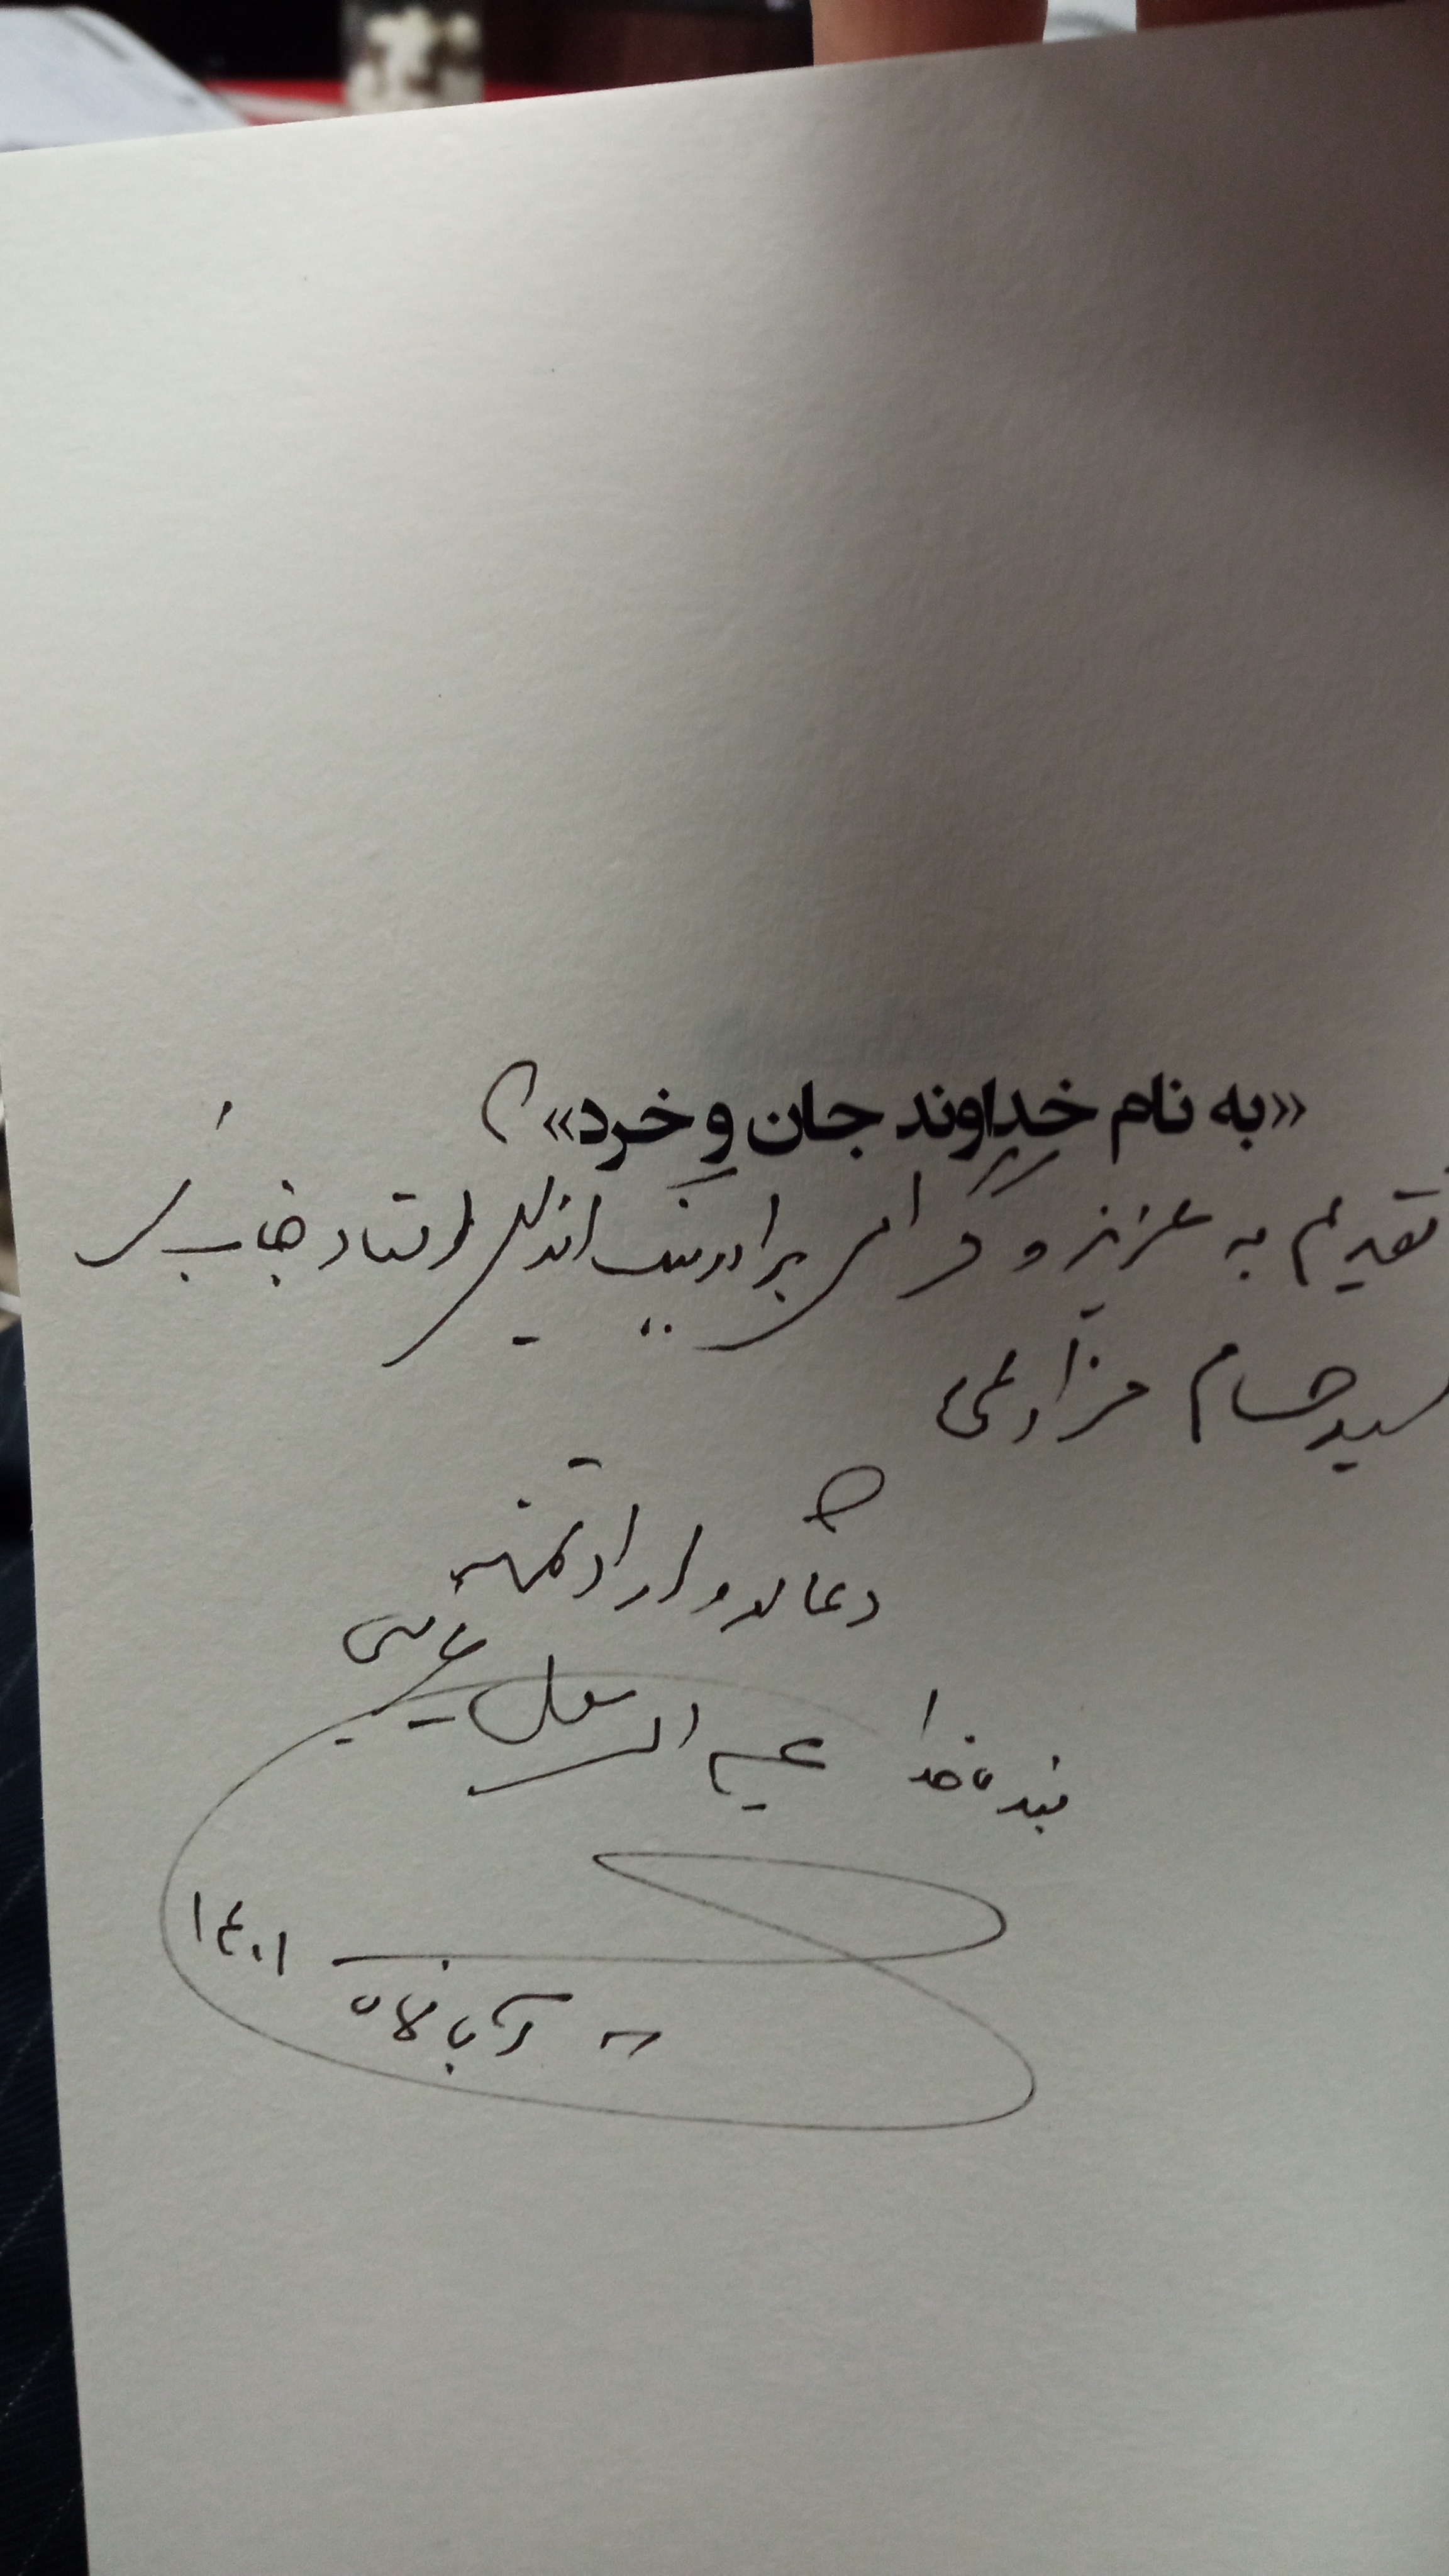 «به نام خداوند جان و خرد»
تقدیم به عزیز و گرامی برادر نیک اندیش استاد جناب
سید حسام مزارعی
دعاگو و ارادتمند
بنده خدا عبدالرسول
آبانماه ۱۴۰۱